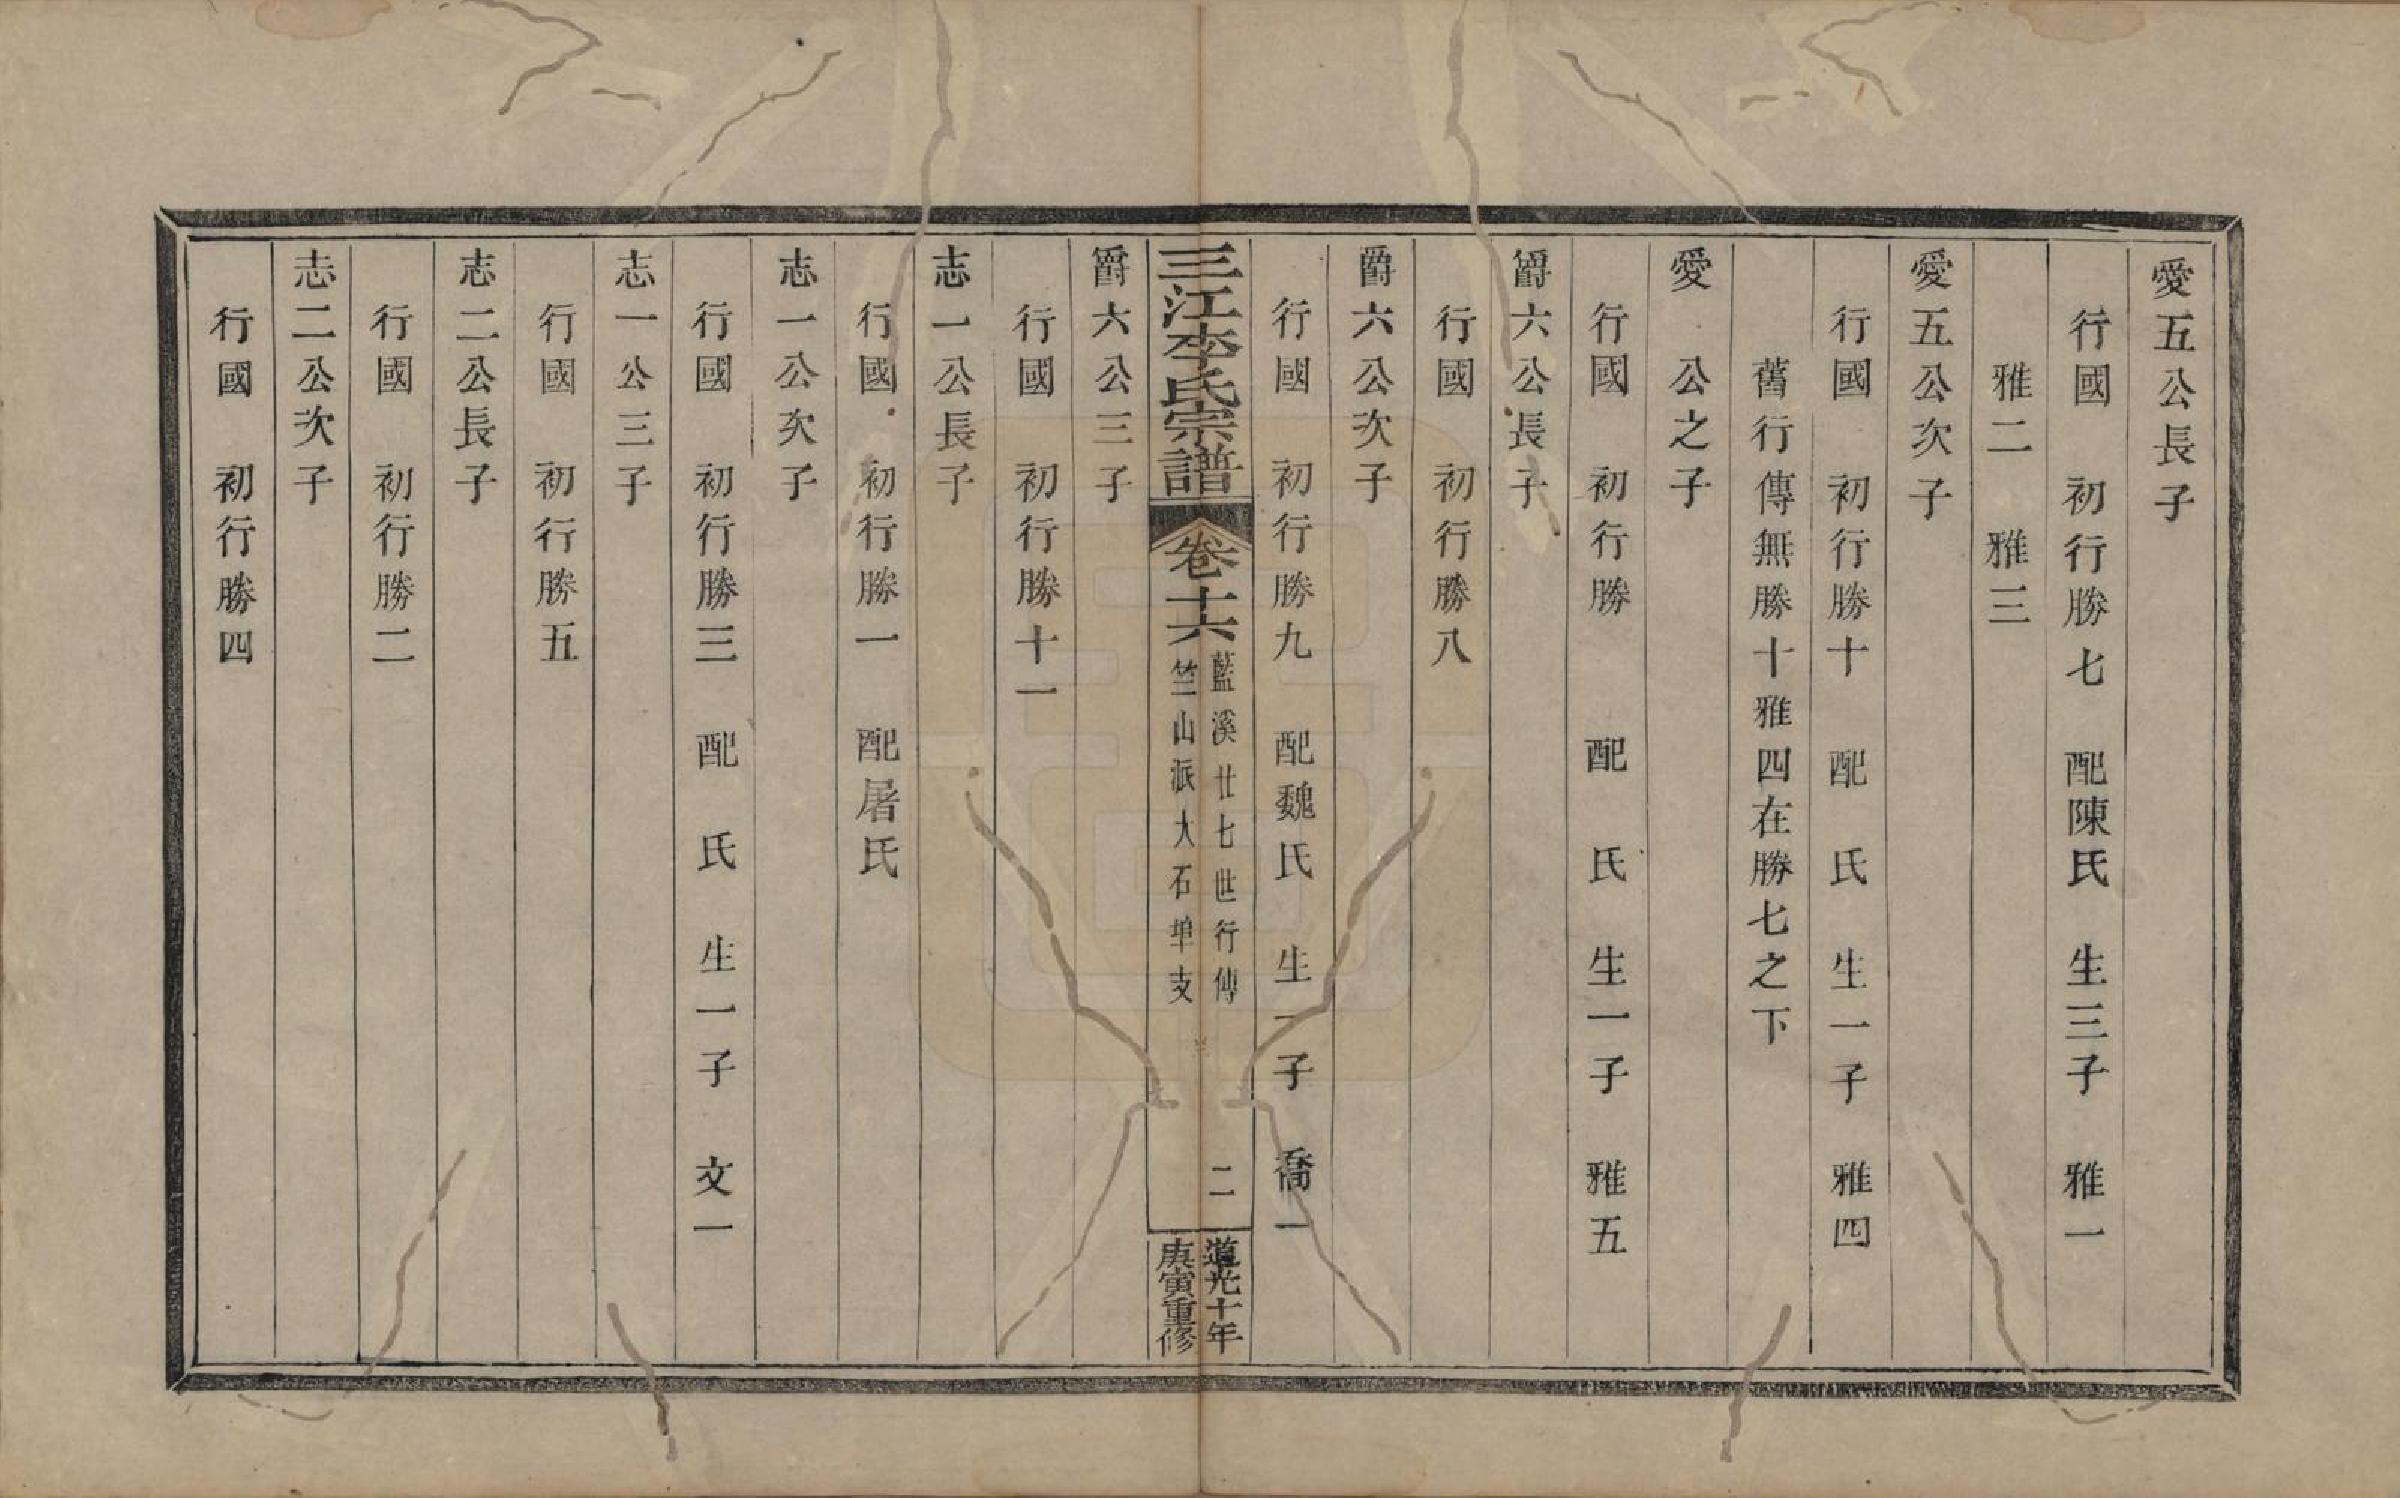 愛五公長子
行國　初行勝七　配陳氏　生三子　雅一
雅二　雅三
愛五公次子
行國　初行勝十　配　氏　生一子　雅四
舊行傳無勝十雅四在勝七之下
愛　公之子
行國　初行勝　　配　氏　生一子　雅五
爵六公長子
行國　初行勝八
爵六公次子
行國　初行勝九　配魏氏　生一子　喬一
三江李氏宗譜
卷十六
藍溪廿七世行傳
竺山派大石埠支
二
道光十年
庚寅重修
爵六公三子
行國　初行勝十一
志一公長子
行國　初行勝一　配屠氏
志一公次子
行國　初行勝三　配　氏　生一子　文一
志一公三子
行國　初行勝五
志二公長子
行國　初行勝二
志二公次子
行國　初行勝四